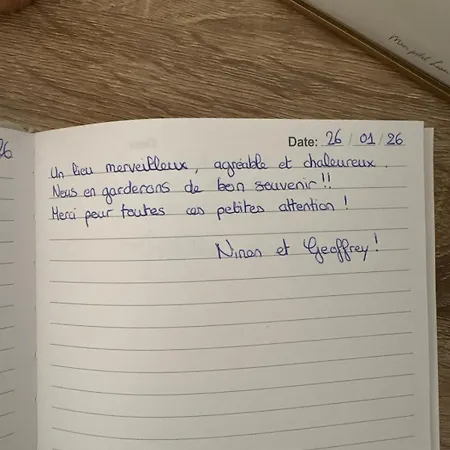 Date: 26 / 01 / 26
Un lieu merveilleux, agréable et chaleureux.
Nous en garderons de bon souvenir !!
Merci pour toutes ces petites attention !
Ninon et Geoffrey !
26
Mon petit